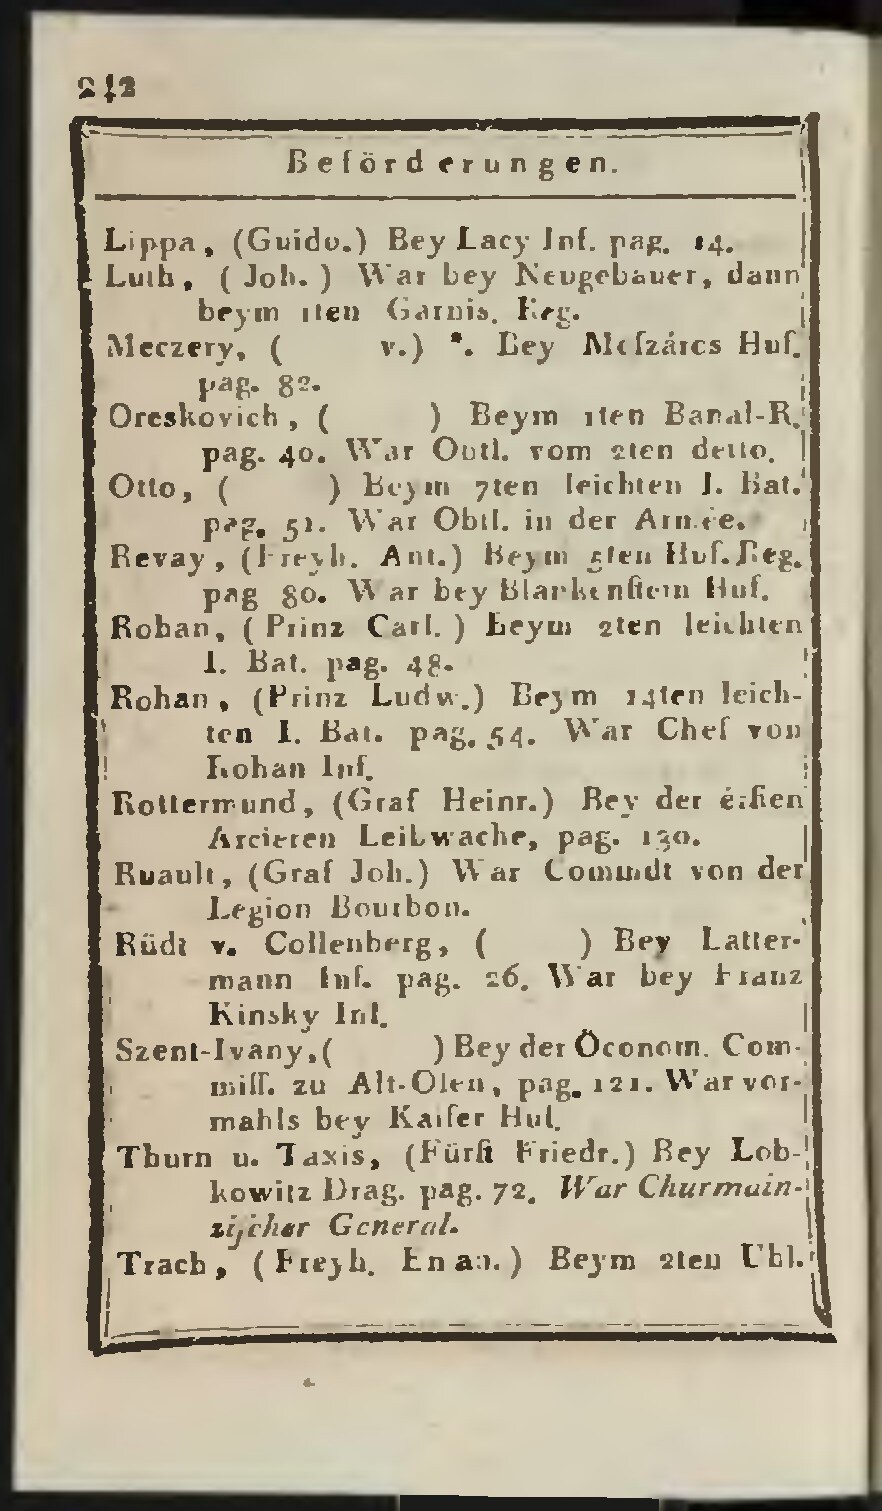 242
Beförderungen.
Lippa, (Guido.) Bey Lacy Inf. pag. 14.
Luth, (Joh.) War bey Neugebauer, dann
beym 1ten Garnis. Reg.
Meczery, ( v.) *. Bey Meſzárcs Huſ.
pag. 82.
Oreskovich, ( ) Beym 1ten Banal-R.
pag. 40. War Obtl. vom 2ten detto.
Otto, ( ) Beym 7ten leichten I. Bat.
pag. 51. War Obtl. in der Armée.
Revay, (Freyh. Ant.) Beym 5ten Huſ. Reg.
pag 80. War bey Blankenſtein Huſ.
Rohan, (Prinz Carl.) Beym 2ten leichten
I. Bat. pag. 48.
Rohan, (Prinz Ludw.) Beym 14ten leich-
ten I. Bat. pag. 54. War Chef von
Rohan Inf.
Rottermund, (Graf Heinr.) Bey der erſten
Arcieren Leibwache, pag. 130.
Ruault, (Graf Joh.) War Commdt von der
Legion Bourbon.
Rüdt v. Collenberg, ( ) Bey Latter-
mann Inf. pag. 26. War bey Franz
Kinsky Inf.
Szent-Ivany, ( ) Bey der Öconom. Com-
miſſ. zu Alt-Ofen, pag. 121. War vor-
mahls bey Kaiſer Huſ.
Thurn u. Taxis, (Fürſt Friedr.) Bey Lob-
kowitz Drag. pag. 72. War Churmain-
ziſcher General.
Trach, (Freyh. Eman.) Beym 2ten Uhl.